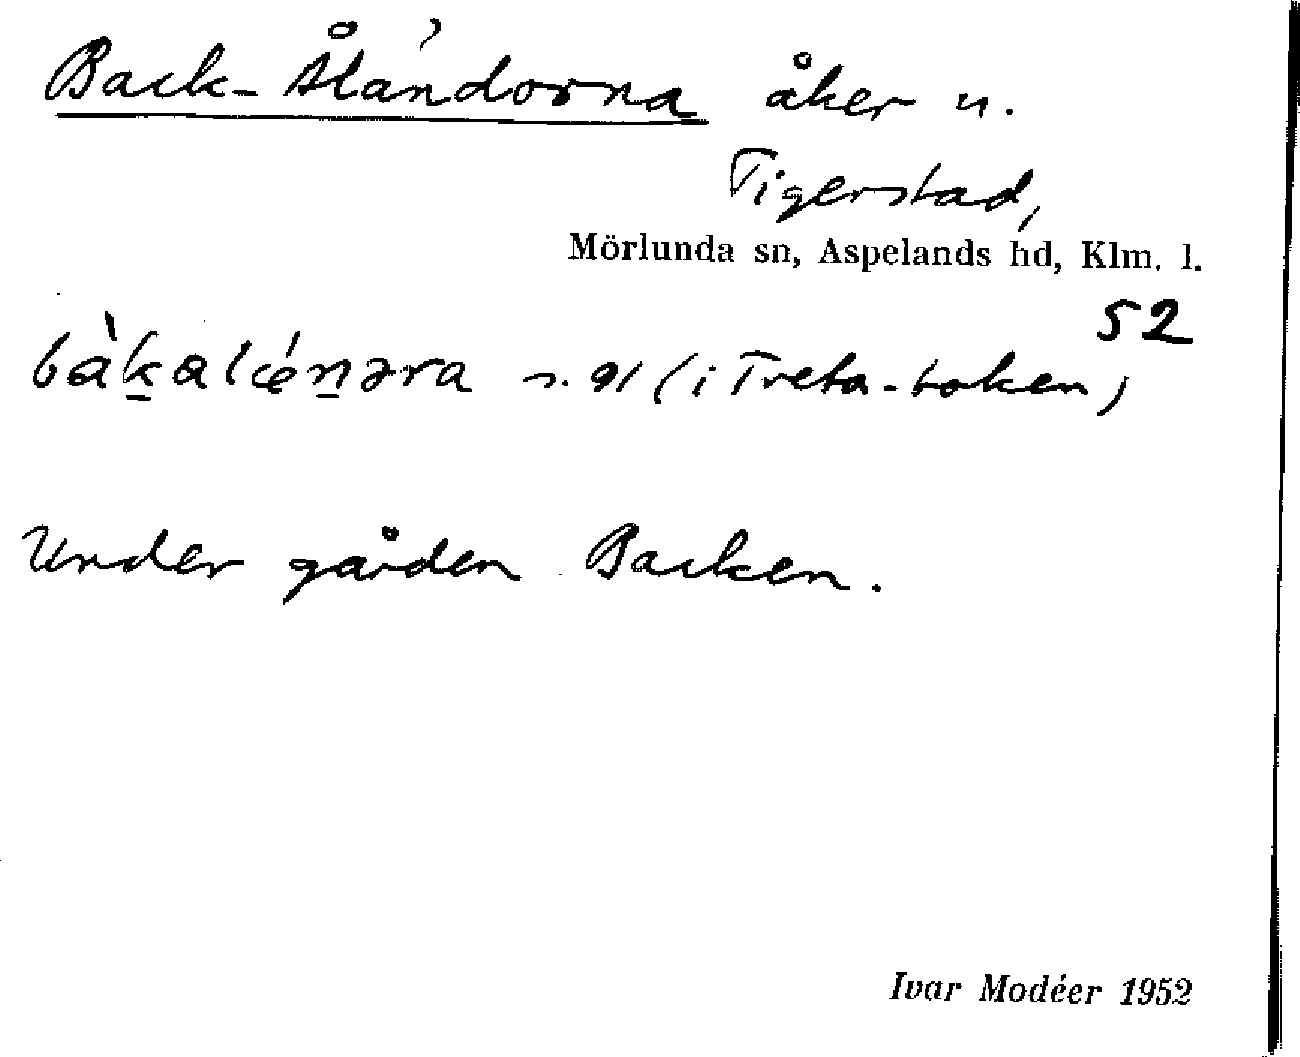 Back-Ålandorna åker u.
Tigerstad,
Mörlunda sn, Aspelands hd, Klm. l.
52
bàkalénəra s. 91 (i Treta-boken)
Under gården Backen.
Ivar Modéer 1952